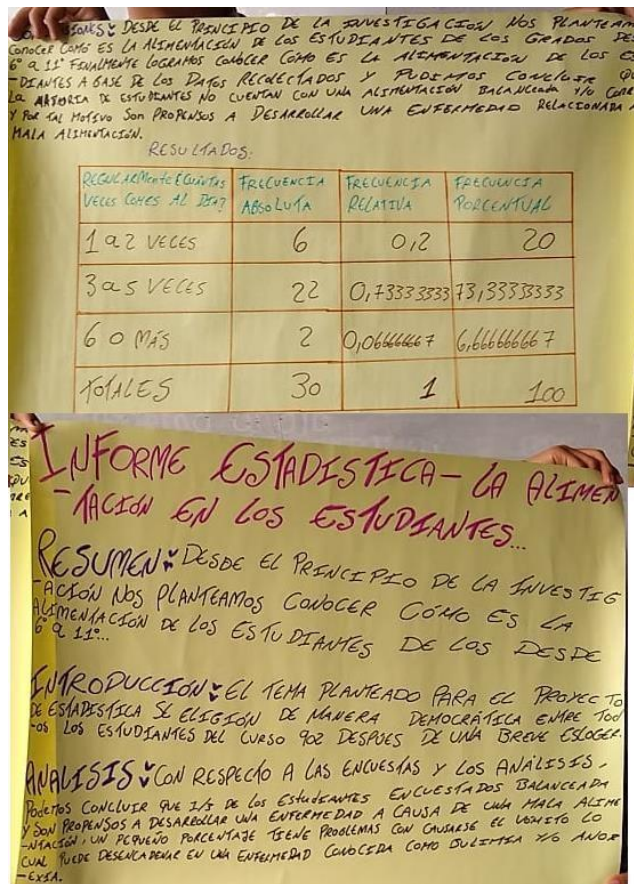 DESDE EL PRINCIPIO DE LA INVESTIGACIÓN NOS PLANTEAM
CONOCER COMÓ ES LA ALIMENTACIÓN DE LOS ESTUDIANTES DE LOS GRADOS DE
6° a 11° FINALMENTE LOGRAMOS CONOCER CÓMO ES LA ALIMENTACIÓN DE LOS ES
-DIANTES A BASE DE LOS DATOS RECOLECTADOS Y PUDIMOS CONCLUIR QU
LA MAYORIA DE ESTUDIANTES NO CUENTAN CON UNA ALIMENTACIÓN BALANCEADA Y/O CORR
Y POR TAL MOTIVO SON PROPENSOS A DESARROLLAR UNA ENFERMEDAD RELACIONADA A
MALA ALIMENTACIÓN.
RESULTADOS:
REGULARMENTE ¿CUÁNTAS VECES COMES AL DÍA? FRECUENCIA ABSOLUTA FRECUENCIA RELATIVA FRECUENCIA PORCENTUAL
1 a 2 VECES 6 0,2 20
3 a 5 VECES 22 0,73333333 73,33333333
6 O MÁS 2 0,06666667 6,666666667
TOTALES 30 1 100
INFORME ESTADISTICA-LA ALIMEN
-TACIÓN EN LOS ESTUDIANTES...
RESUMEN: DESDE EL PRINCIPIO DE LA INVESTIG
-ACIÓN NOS PLANTEAMOS CONOCER CÓMO ES LA
ALIMENTACIÓN DE LOS ESTUDIANTES DE LOS DESDE
6° a 11°...
INTRODUCCIÓN: EL TEMA PLANTEADO PARA EL PROYECTO
DE ESTADISTICA SE ELIGIÓN DE MANERA DEMOCRÁTICA ENTRE TOD
-OS LOS ESTUDIANTES DEL CURSO 902 DESPUES DE UNA BREVE ESCOGER.
ANALISIS: CON RESPECTO A LAS ENCUESTAS Y LOS ANÁLISIS,
PODEMOS CONCLUIR QUE 1/3 DE LOS ESTUDIANTES ENCUESTADOS BALANCEADA
Y SON PROPENSOS A DESARROLLAR UNA ENFERMEDAD A CAUSA DE UNA MALA ALIME
-NTACIÓN, UN PEQUEÑO PORCENTAJE TIENE PROBLEMAS CON CAUSARSE EL VOMITO LO
CUAL PUEDE DESENCADENAR EN UNA ENFERMEDAD CONOCIDA COMO BULIMIA Y/O ANOR
-EXIA.